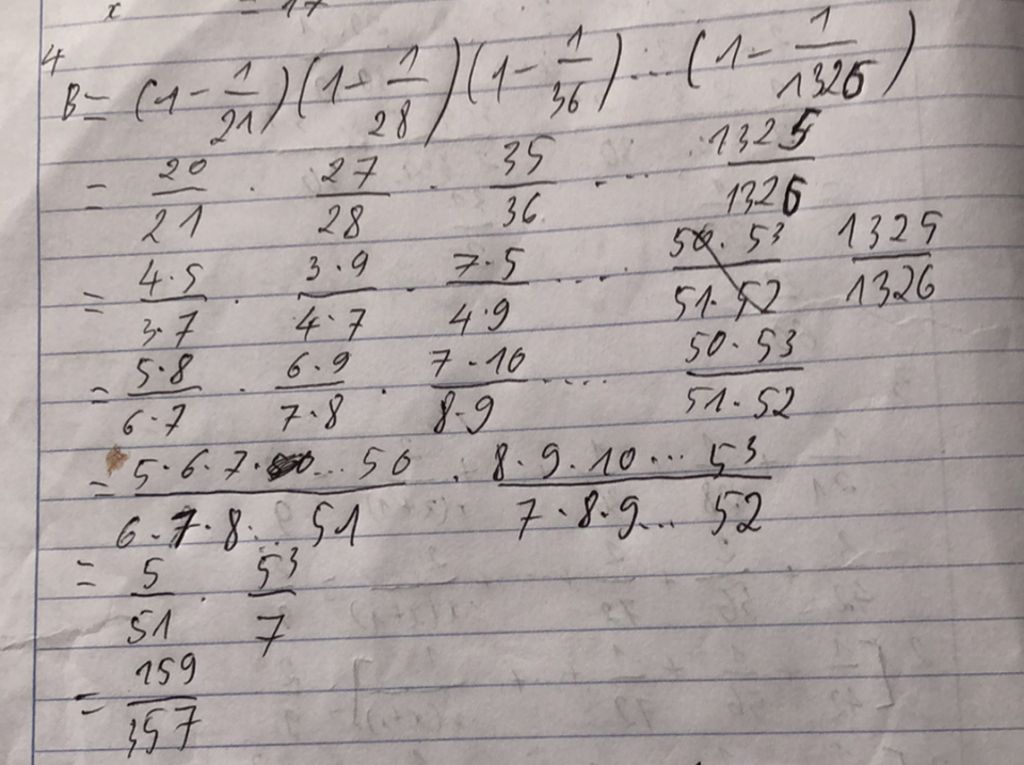 x = 17
4
B = (1 - 1/21)(1 - 1/28)(1 - 1/36)...(1 - 1/1326)
= 20/21 . 27/28 . 35/36 ... 1325/1326
= 4.5/3.7 . 3.9/4.7 . 7.5/4.9 ... 50.53/51.52 1325/1326
= 5.8/6.7 . 6.9/7.8 . 7.10/8.9 .... 50.53/51.52
= 5.6.7...50/6.7.8...51 . 8.9.10...53/7.8.9...52
= 5/51 . 53/7
= 159/357